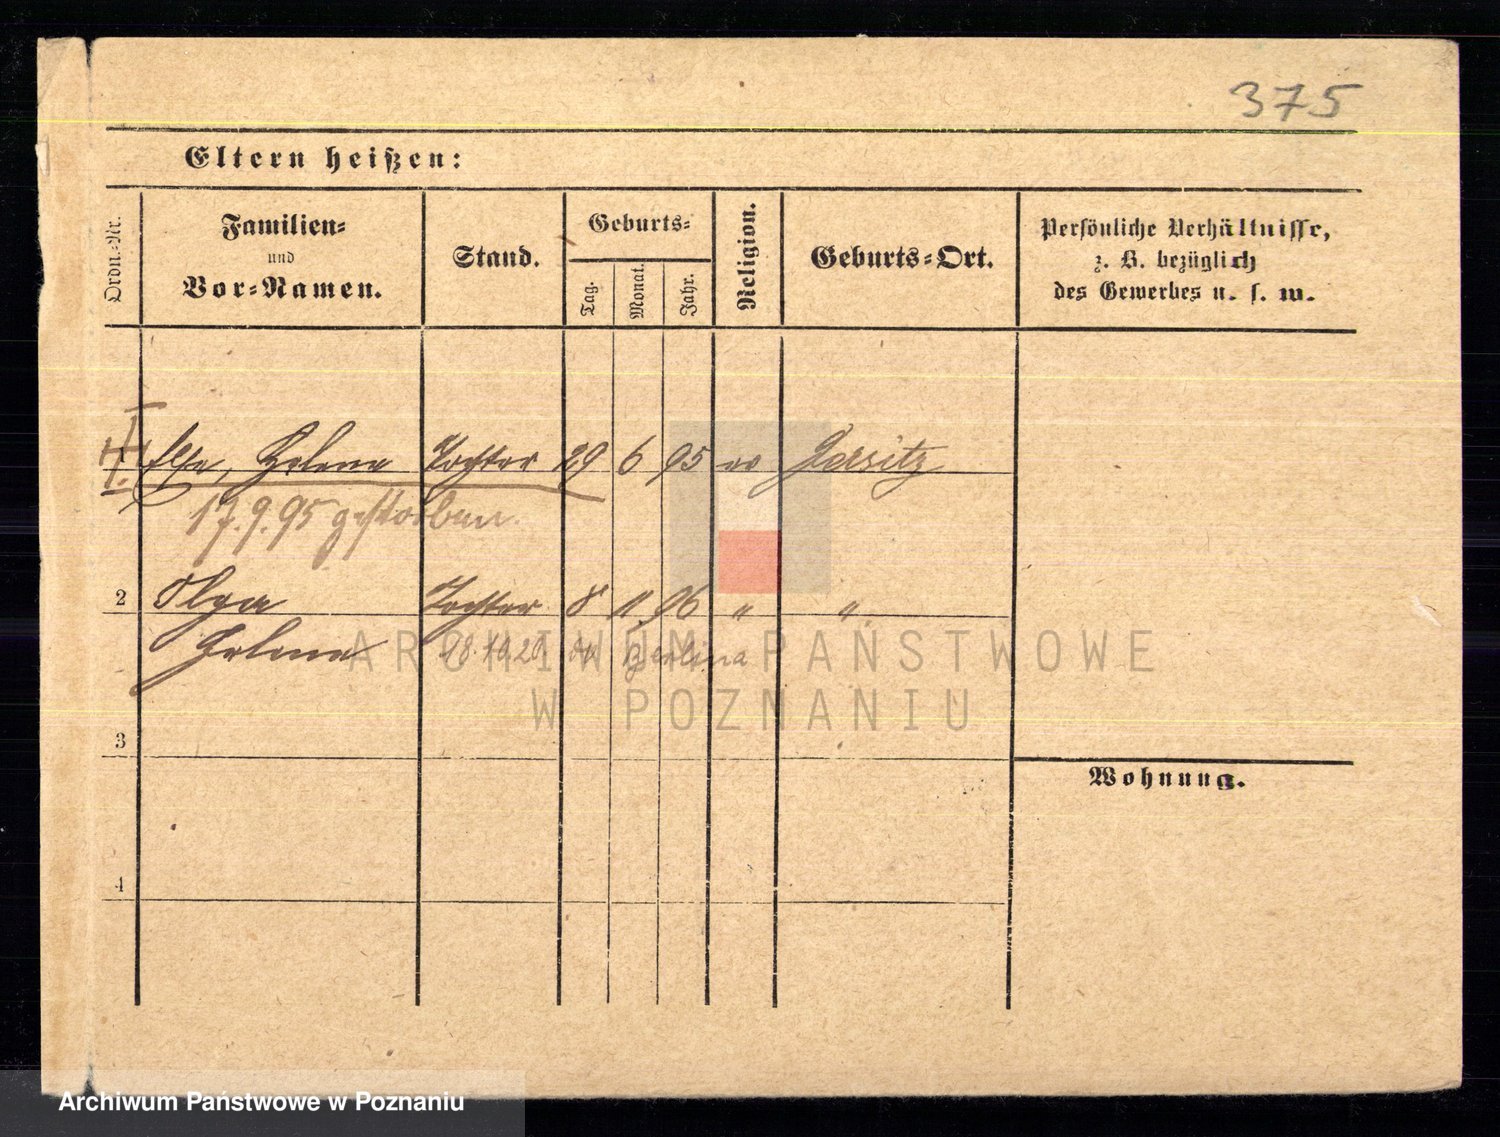 375
Eltern heißen:
Ordn.-Nr.
Familien-
und
Vor-Namen.
Stand.
Geburts-
Tag.
Monat.
Jahr.
Religion.
Geburts-Ort.
Persönliche Verhältnisse,
z. B. bezüglich
des Gewerbes u. s. w.
Else, Helene Tochter 29 6 95 ev Jersitz
17.9.95 gestorben.
2 Olga Tochter 8 11. 96 " "
Helene 18.10.20. do Berlina
3
Wohnung.
4
ARCHIWUM PAŃSTWOWE
W POZNANIU
Archiwum Państwowe w Poznaniu